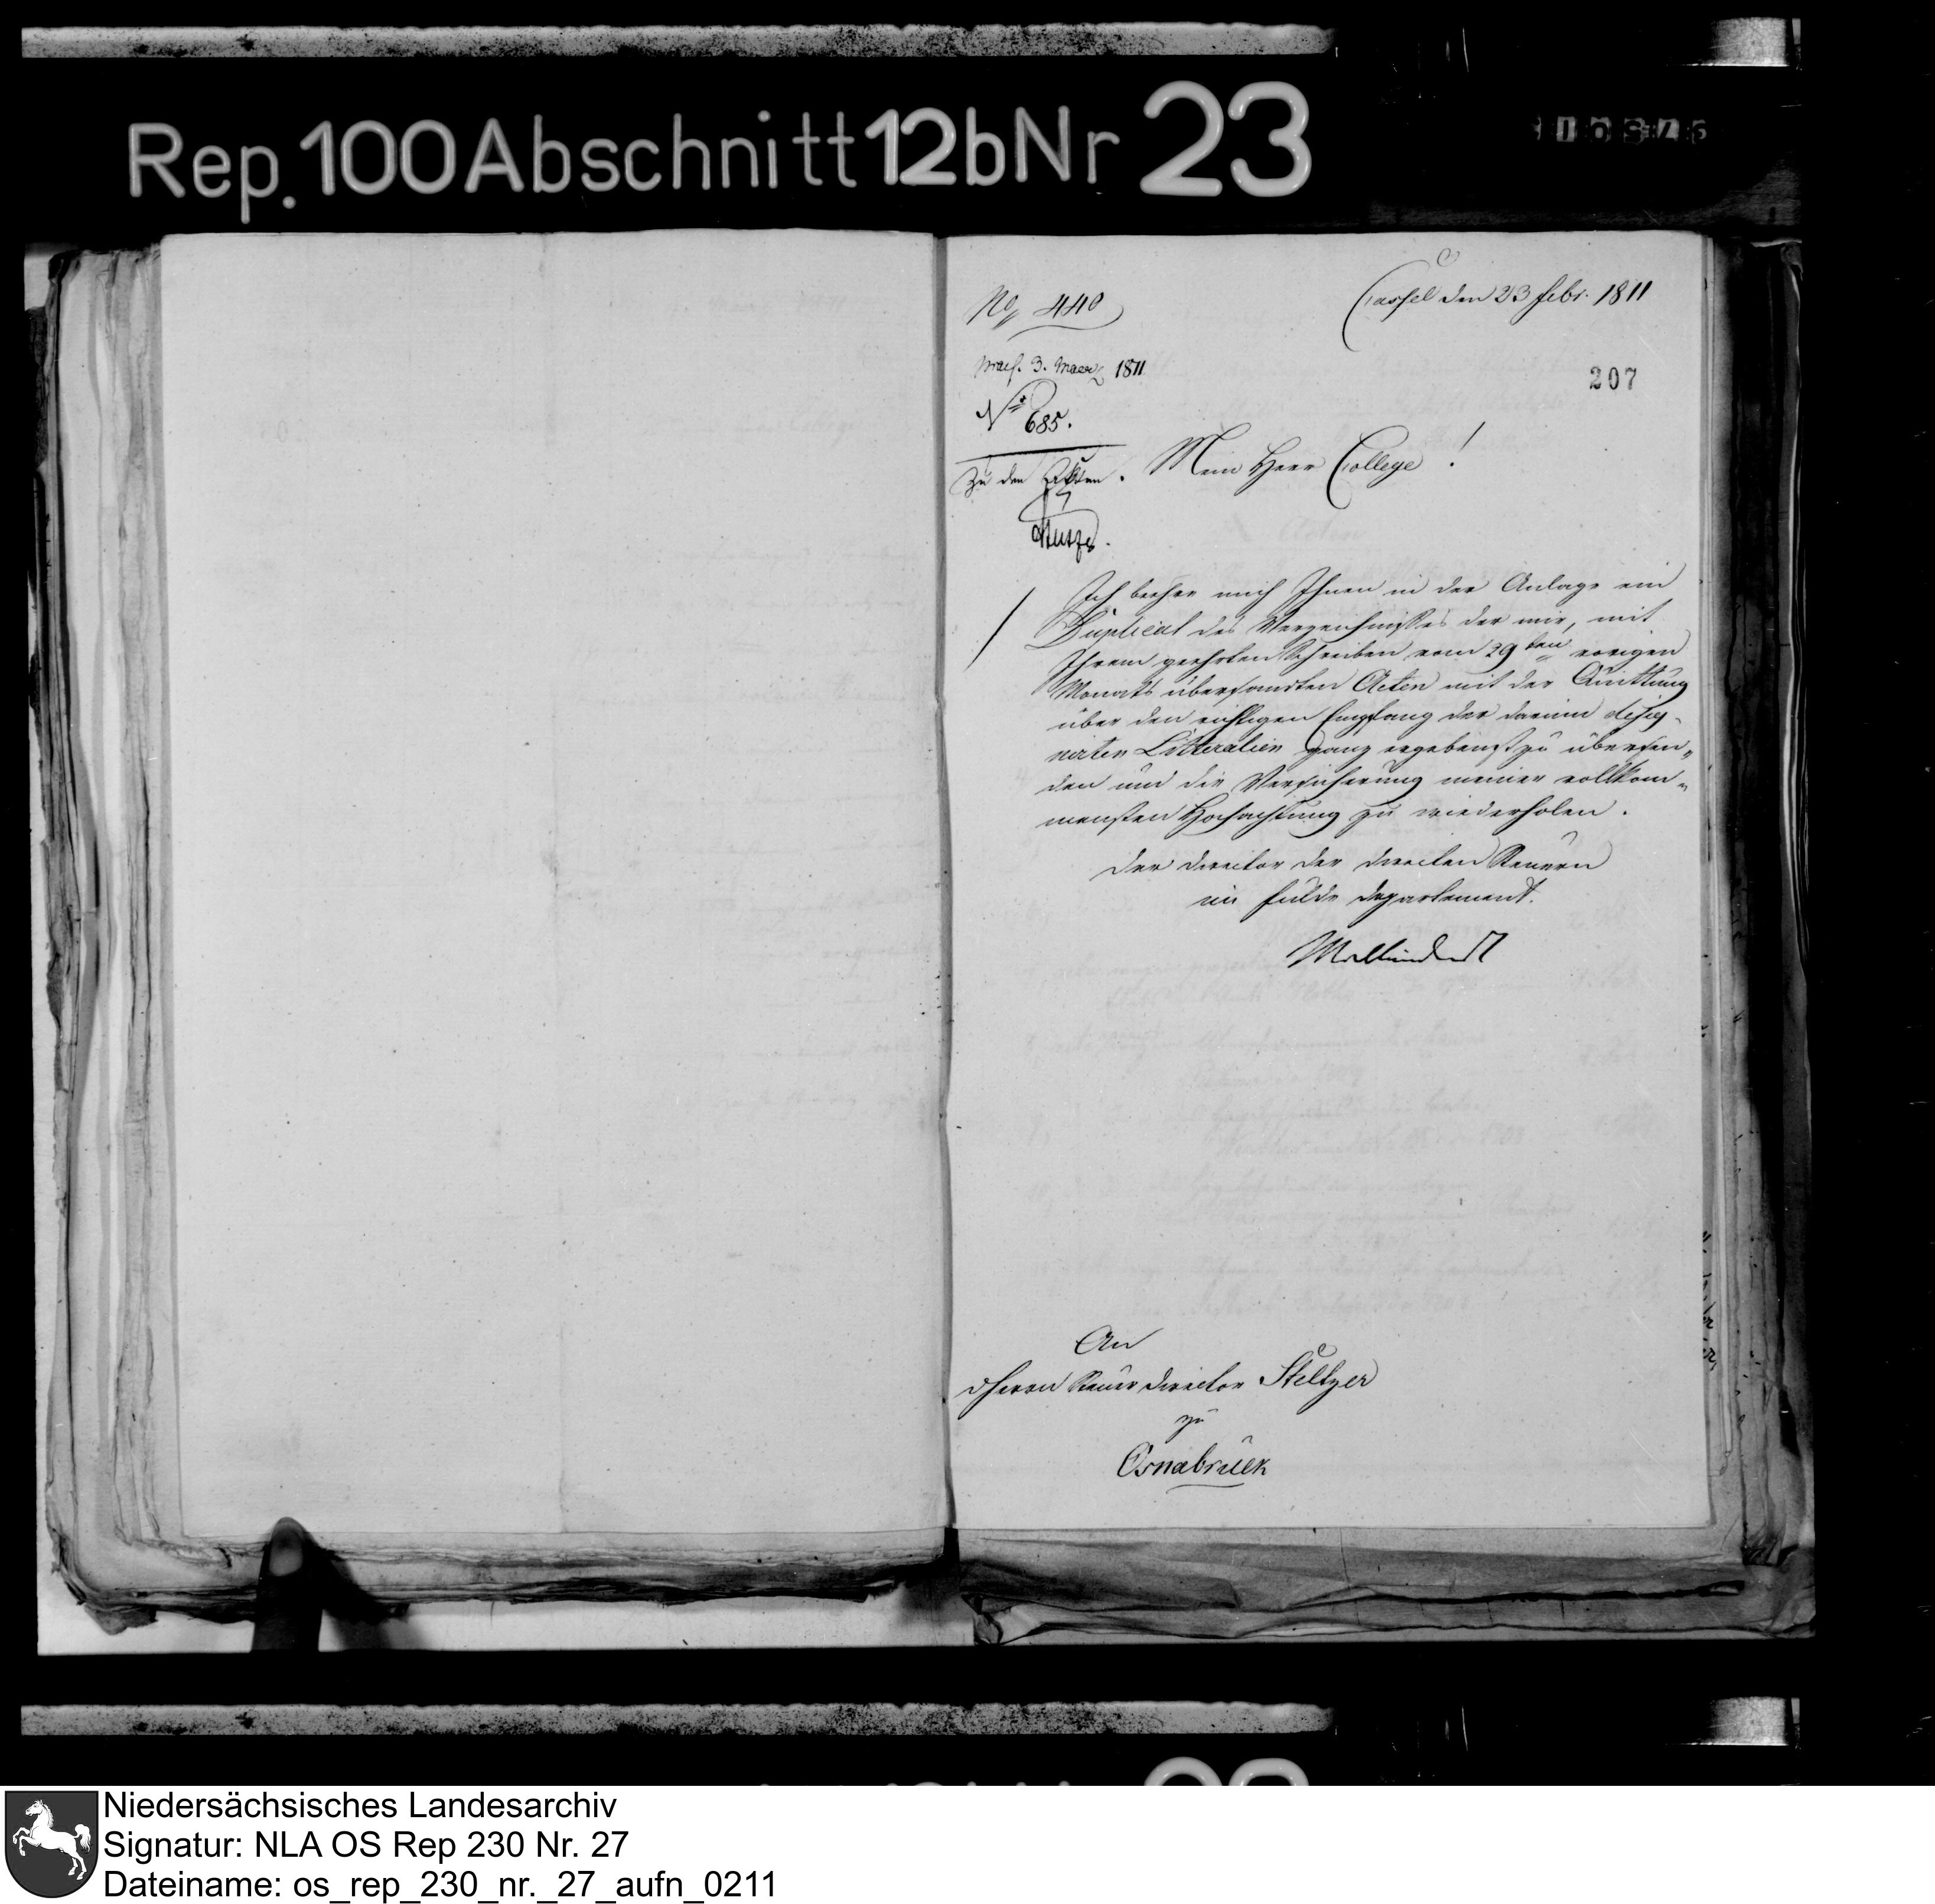 Rep. 100 Abschnitt 12b Nr 23
Cassel den 23 Febr. 1811
No 440
207
praes. 3. Maerz 1811
No 685.
Zu den Akten.
Mein Herr College!
Ich beehre mich Ihnen in der Anlage ein
Duplicat des Verzeichnißes der mir, mit
Ihrem geehrten Schreiben vom 29ten vorigen
Monats übersandten Acten mit der Quittung
über den richtigen Empfang der darinn desig-
nirten Litteralien ganz ergebenst zu übersen-
den und die Versicherung meiner vollkom-
mensten Hochachtung zu wiederholen.
Der Director der directen Steuern
im Fulda Departement.
An
d Herrn Steuer Director Steltzer
zu
Osnabrück
Niedersächsisches Landesarchiv
Signatur: NLA OS Rep 230 Nr. 27
Dateiname: os_rep_230_nr._27_aufn_0211